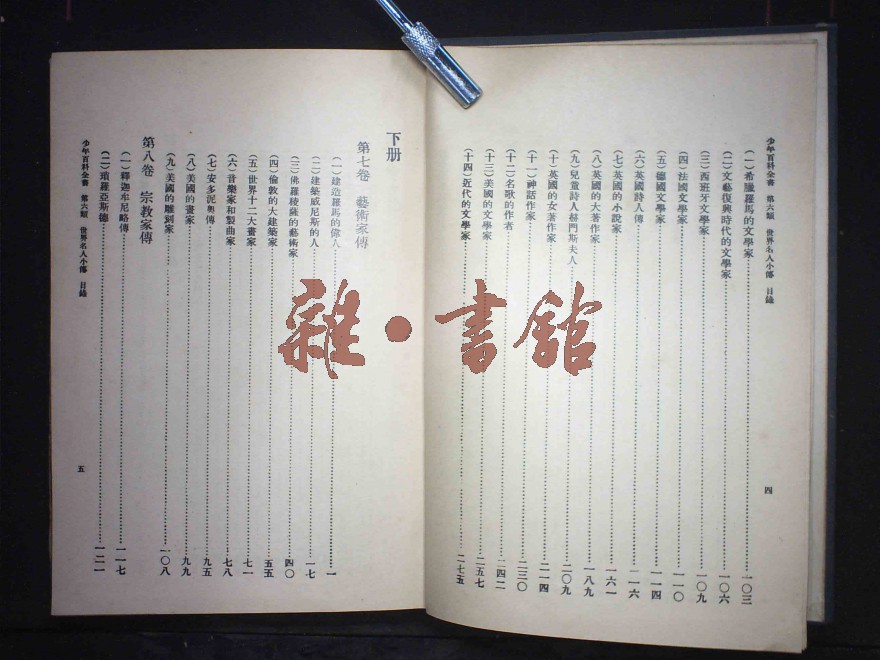 少年百科全書 第六類 世界名人小傳 目錄
四
(一)希臘羅馬的文學家 一〇三
(二)文藝復興時代的文學家 一〇六
(三)西班牙文學家 一〇九
(四)法國文學家 一一〇
(五)德國文學家 一一四
(六)英國詩人傳 一一六
(七)英國的小說家 一六一
(八)英國的大著作家 一八九
(九)兒童詩人赫門斯夫人 二〇九
(十)英國的女著作家 二一四
(十一)神話作家 二三〇
(十二)名歌的作者 二四二
(十三)美國的文學家 二五七
(十四)近代的文學家 二七五
下册
第七卷 藝術家傳
(一)建造羅馬的偉人 一
(二)建築威尼斯的人 一七
(三)佛羅稜薩的藝術家 四〇
(四)倫敦的大建築家 五五
(五)世界十二大畫家 七一
(六)音樂家和製曲家 七八
(七)安多泥奧傳 九五
(八)美國的畫家 九九
(九)美國的雕刻家 一〇八
第八卷 宗教家傳
(一)釋迦牟尼略傳 一一七
(二)瑣羅亞斯德 一二一
少年百科全書 第六類 世界名人小傳 目錄
五
雜·書館